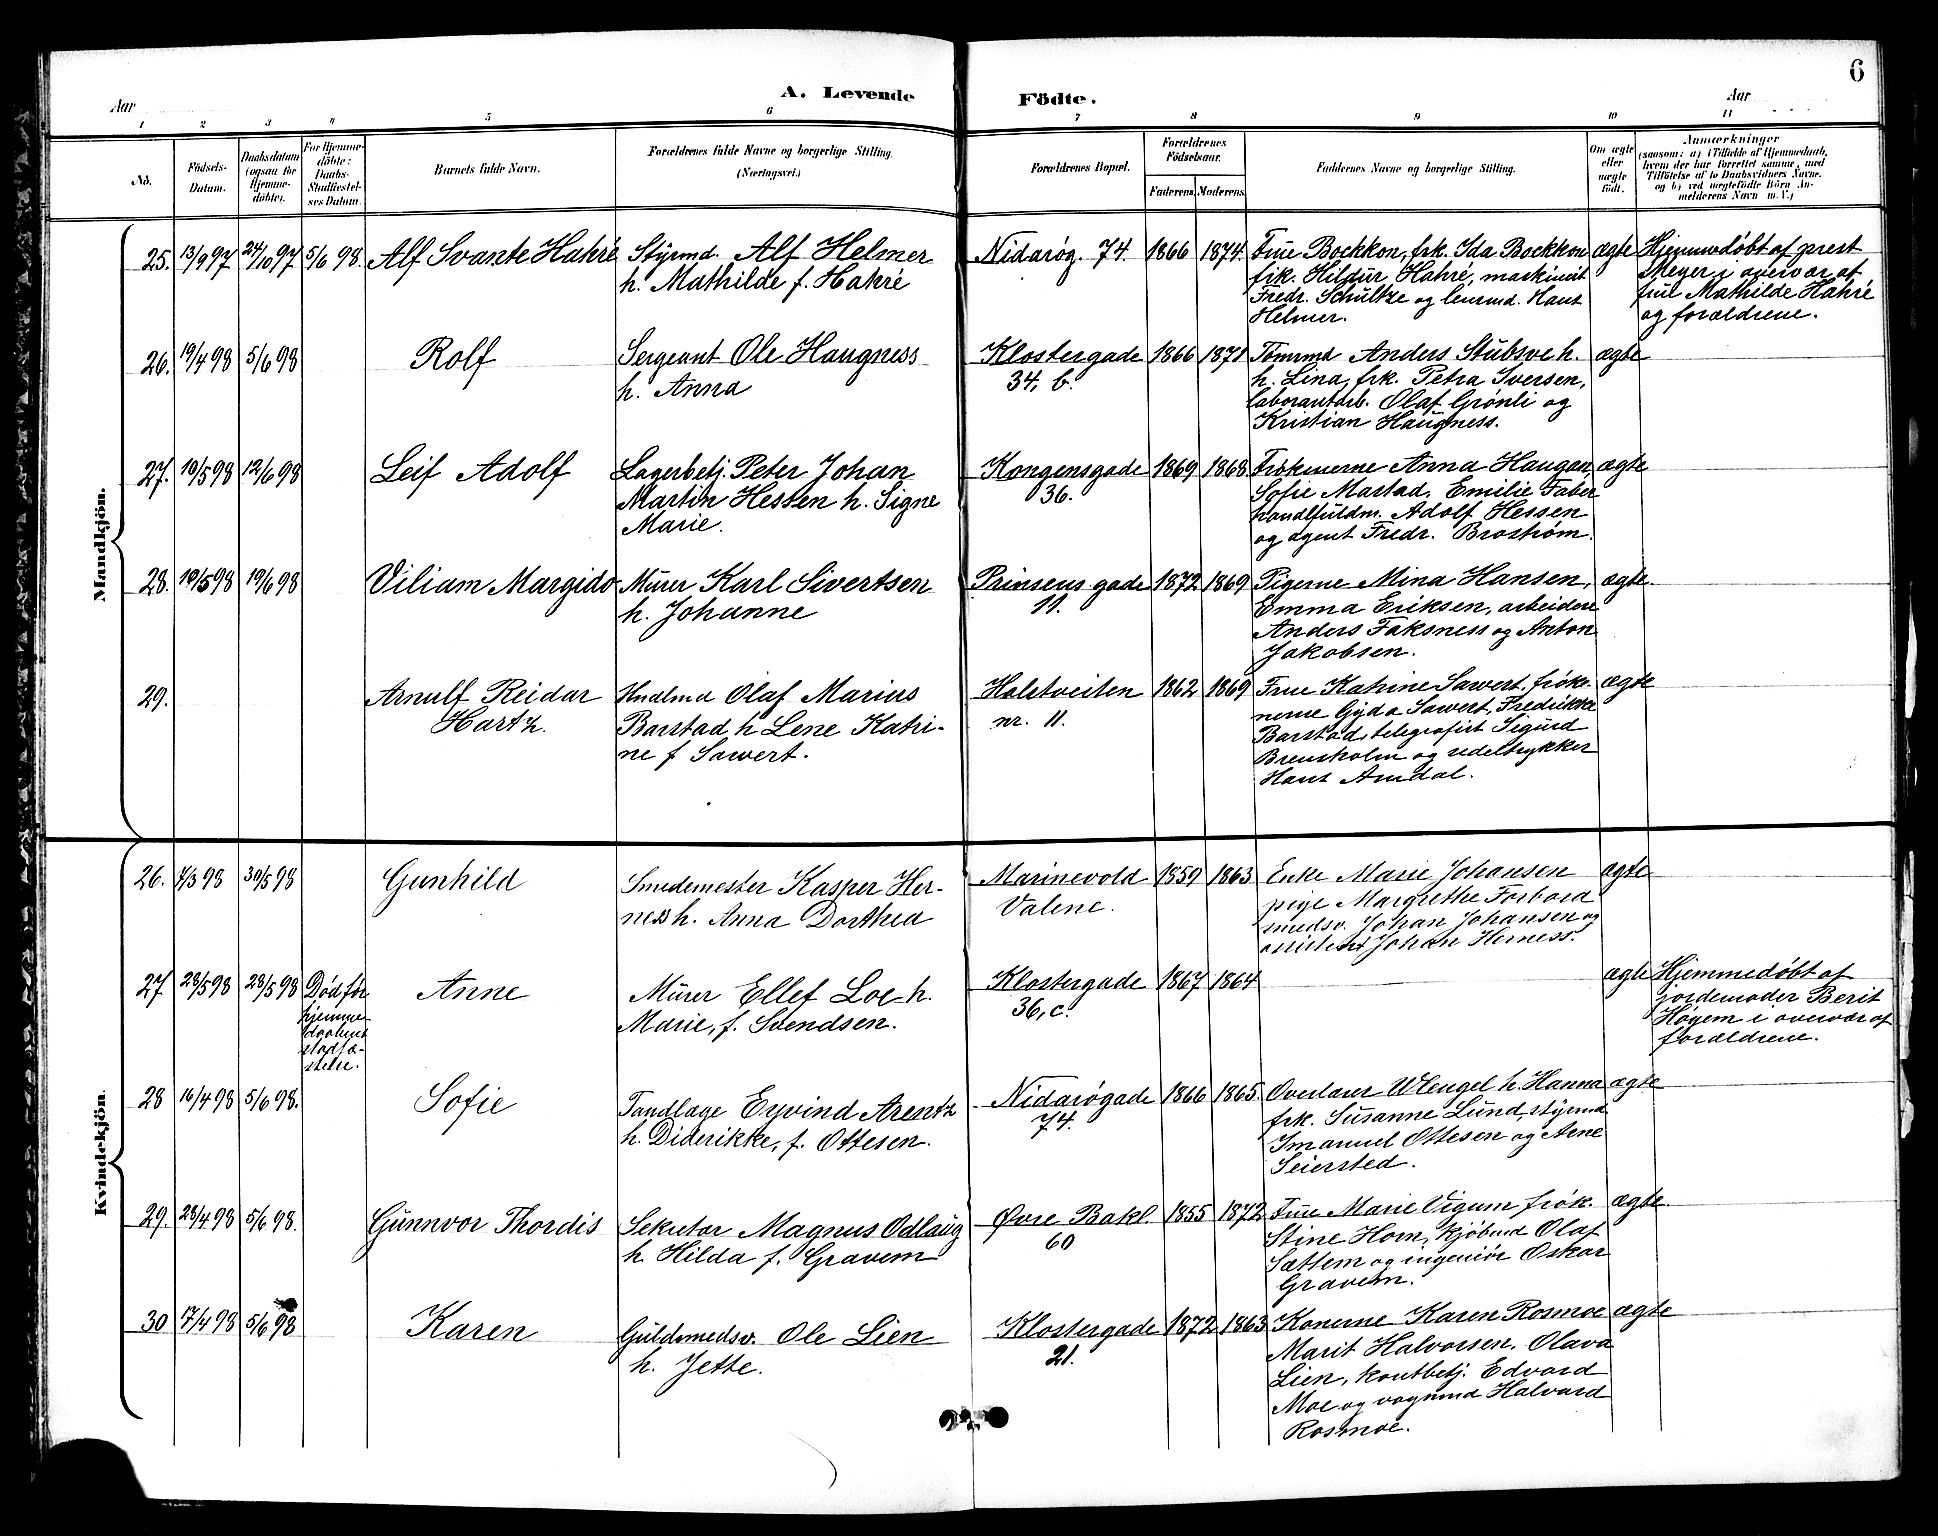 6
Aar A. Levende Födte. Aar
1 2 3 4 5 6 7 8 9 10 11
No.
Födsels-
Datum.
Daabsdatum
(ogsaa for
Hjemme-
döbte).
For Hjemme-
döbte:
Daabs-
Stadfæstel-
ses Datum.
Barnets fulde Navn.
Forældrenes fulde Navne og borgerlige Stilling.
(Næringsvei.)
Forældrenes Bopæl.
Forældrenes
Födselsaar.
Faderens. Moderens.
Faddernes Navne og borgerlige Stilling.
Om ægte
eller
uægte
födt.
Anmærkninger
(saasom: a) i Tilfælde af Hjemmedaab,
hvem der har forrettet samme, med
Tilföielse af to Daabsvidners Navne,
og b) ved uægtefödte Börn An-
melderens Navn m. V.)
Mandkjön.
25. 13/9 97 24/10 97 5/6 98. Alf Svante Hahré
Styrmd. Alf Helmer
h. Mathilde f. Hahré
Nidarøg. 74. 1866 1874.
Frue Bockkon, frk. Ida Bockkon
frk. Hildur Hahré, maskinist
Fredr. Schultze og Hans
Helmer.
ægte
Hjemmedøbt af prest
Meyer i overvær af
frue Mathilde Hahré
og forældrene.
26. 19/4 98 5/6 98 Rolf
Sergeant Ole Haugness
h. Anna
Klostergade
34, b.
1866 1871
Tømmd Anders Stubsve h.
h. Lina, frk. Petra Iversen,
laborantarb. Olaf Grønli og
Kristian Haugness.
ægte
27. 10/5 98 12/6 98 Leif Adolf
Lagerbetj. Peter Johan
Martin Hessen h. Signe
Marie.
Kongensgade
36.
1869 1868
Frøknerne Anna Haugen
Sofie Mastad, Emilie Faber
handlfuldm. Adolf Hessen
og agent Fredr. Brostrøm.
ægte
28. 10/5 98 19/6 98 Viliam Margido
Murer Karl Sivertsen
h. Johanne
Prinsens gade
11.
1872 1869
Pigerne Mina Hansen,
Emma Eriksen, arbeidere
Anders Faksness og Anton
Jakobsen.
ægte.
29. Arnulf Reidar
Hartz.
Hndlmd Olaf Marius
Barstad h Lene Katri-
ne f Sawert.
Holstveiten
nr. 11.
1862 1869
Frue Katrine Sawert, frøke-
nerne Gyda Sawert, Fredrikke
Barstad, telegrafist Sigurd
Brensholm og sedeltrykker
Hans Amdal.
ægte
Kvindekjön.
26. 7/3 98 30/5 98 Gunhild
Smedemester Kasper Her-
ness h. Anna Dorthea
Marinevold
Valene.
1859 1863
Enke Marie Johansen
pige Margrethe Forbord
smedsv. Johan Johansen og
assistent Johan Herness.
ægte
27. 28/5 98 28/5 98
Død før
hjemme-
daabens
stadfæ-
stelse.
Anne
Murer Ellef Loe h.
Marie, f. Svendsen.
Klostergade
36, c.
1867 1864
ægte
Hjemmedøbt af
jordemoder Berit
Høyem i overvær af
forældrene.
28 16/4 98 5/6 98. Sofie
Tandlæge Eyvind Arentz
h. Diderikke, f. Ottesen.
Nidarøgade
74.
1866 1865.
Overlærer Wleugel h. Hanna
frk. Susanne Lund, styrmd
Imanuel Ottesen og Arne
Seiersted.
ægte
29. 28/4 98 5/6 98. Gunnvor Thordis
Sekretær Magnus Odlaug
h. Hilda f. Gravem
Øvre Bakl.
60
1855 1872
Frue Marie Vigum frøk.
Stine Horn, kjøbmd Olaf
Sættem og ingeniør Oskar
Gravem.
ægte.
30 17/4 98 5/6 98 Karen
Guldsmedsv. Ole Lien
h. Jette.
Klostergade
21.
1872 1863
Konerne Karen Rosmoe
Marit Halvorsen, Olava
Lien, kontbetj. Edvard
Moe og vognmd Halvard
Rosmoe.
ægte